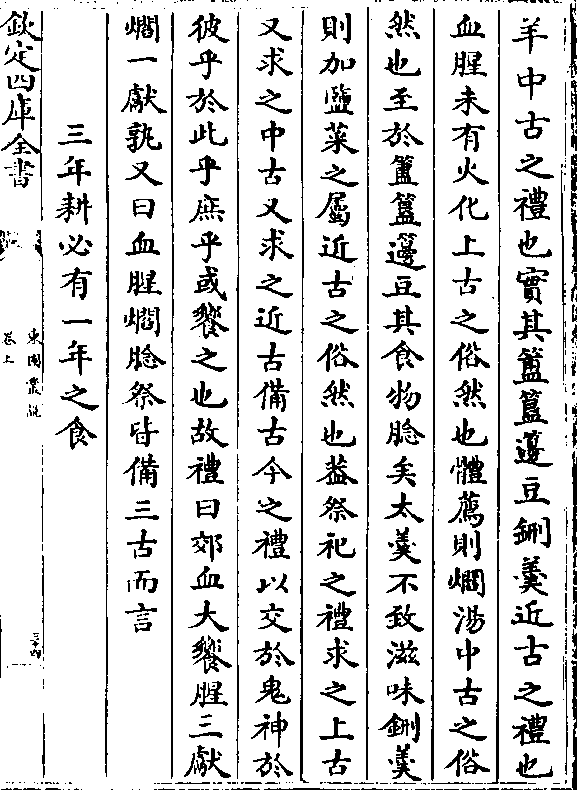 羊中古之禮也實其簠簋籩豆鉶羮近古之禮也
血腥未有火化上古之俗然也體薦則爓湯中古之俗
然也至於簠簋籩豆其食物腍矣太羮不致滋味鉶羮
則加鹽菜之屬近古之俗然也葢祭祀之禮求之上古
又求之中古又求之近古備古今之禮以交於鬼神於
彼乎於此乎庶乎或饗之也故禮曰郊血大饗腥三獻
爓一獻孰又曰血腥爓腍祭皆備三古而言
三年耕必有一年之食
欽定四庫全書
東園叢說
卷上
三十四